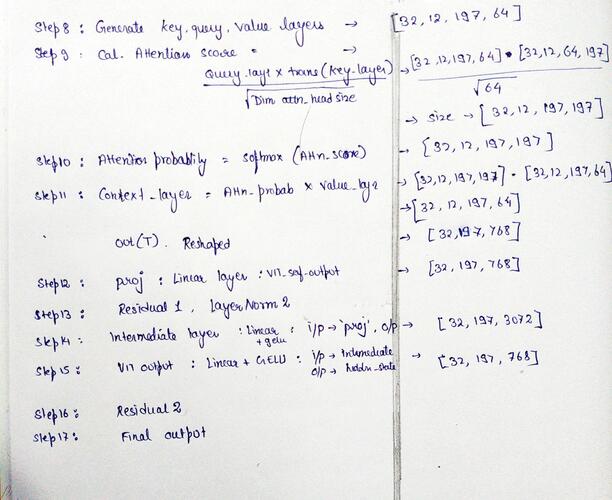 Step 8 : Generate key, query, value layers → [32, 12, 197, 64]
Step 9 : Cal. Attention score =
Query_layr x trans(key_layer) / √Dim attn_head size → [32,12,197,64] • [32,12,64,197] / √64
→ size → [32, 12, 197, 197]
Step 10 : Attention probability = softmax (Attn_score) → [32, 12, 197, 197]
Step 11 : Context_layer = Attn_probab x value_layr → [32,12,197,197] • [32,12,197,64]
→ [32, 12, 197, 64]
out(T). Reshaped → [32, 197, 768]
Step 12 : proj : Linear layer : VIT_self-output → [32, 197, 768]
Step 13 : Residual 1, LayerNorm 2
Step 14 : Intermediate layer : Linear + gelu : i/p → 'proj', o/p → [32, 197, 3072]
Step 15 : VIT output : Linear + GELU : i/p → Intermediate → [32, 197, 768]
o/p → hiddn_state
Step 16 : Residual 2
Step 17 : Final output